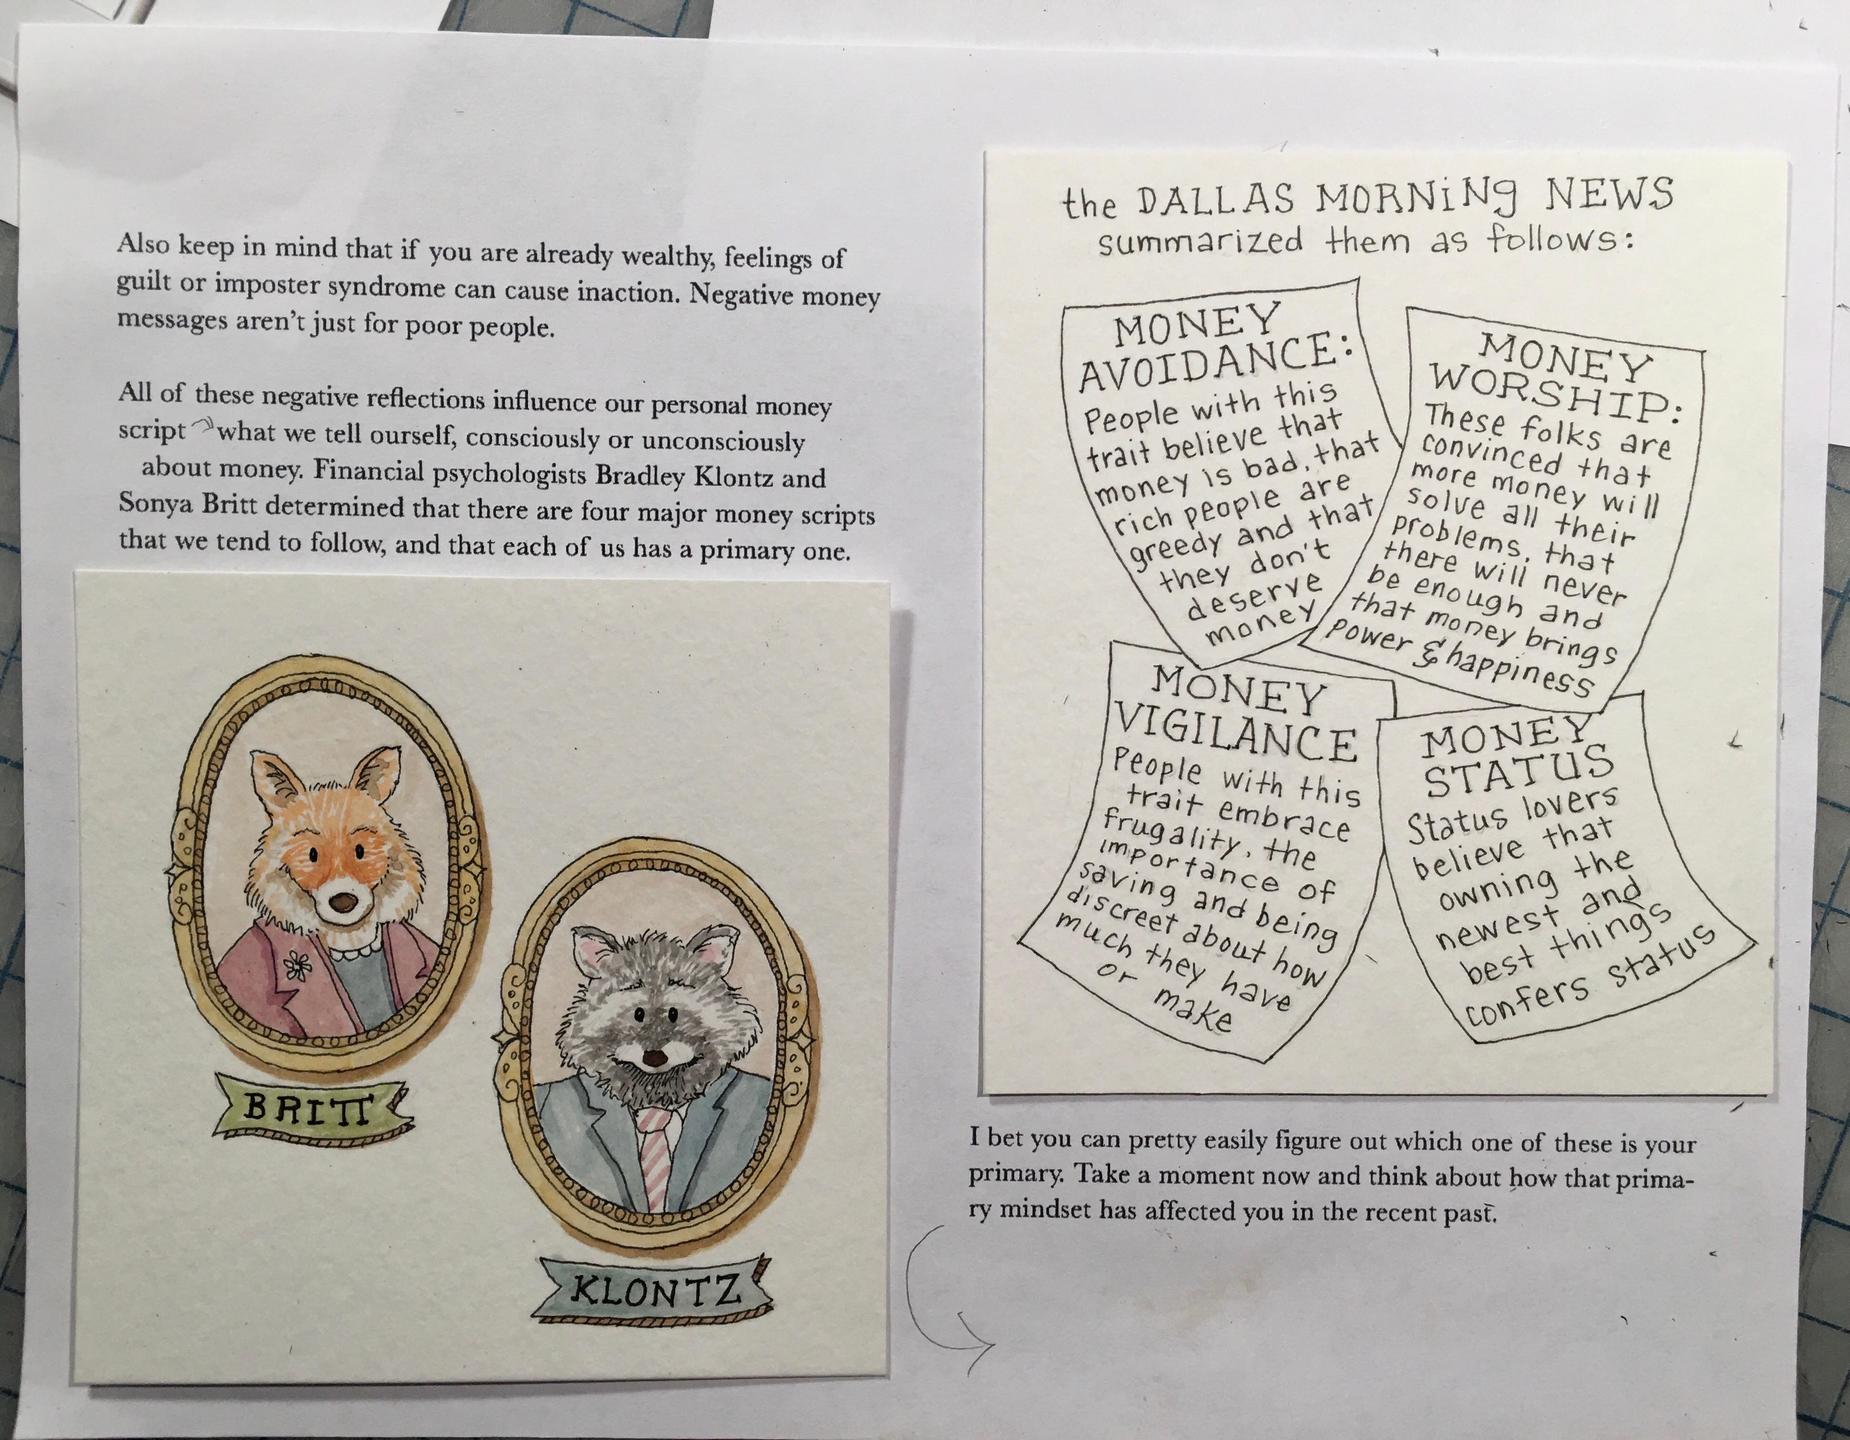 Also keep in mind that if you are already wealthy, feelings of
guilt or imposter syndrome can cause inaction. Negative money
messages aren't just for poor people.
All of these negative reflections influence our personal money
script what we tell ourself, consciously or unconsciously
about money. Financial psychologists Bradley Klontz and
Sonya Britt determined that there are four major money scripts
that we tend to follow, and that each of us has a primary one.
BRITT
KLONTZ
the DALLAS MORNiNg NEWS
summarized them as follows:
MONEY
AVOIDANCE:
People with this
trait believe that
money is bad, that
rich people are
greedy and that
they don't
deserve
money
MONEY
WORSHIP:
These folks are
convinced that
more money will
solve all their
problems, that
there will never
be enough and
that money brings
power & happiness
MONEY
VIGILANCE
People with this
trait embrace
frugality, the
importance of
saving and being
discreet about how
much they have
or make
MONEY
STATUS
Status lovers
believe that
owning the
newest and
best things
confers status
I bet you can pretty easily figure out which one of these is your
primary. Take a moment now and think about how that prima-
ry mindset has affected you in the recent past.